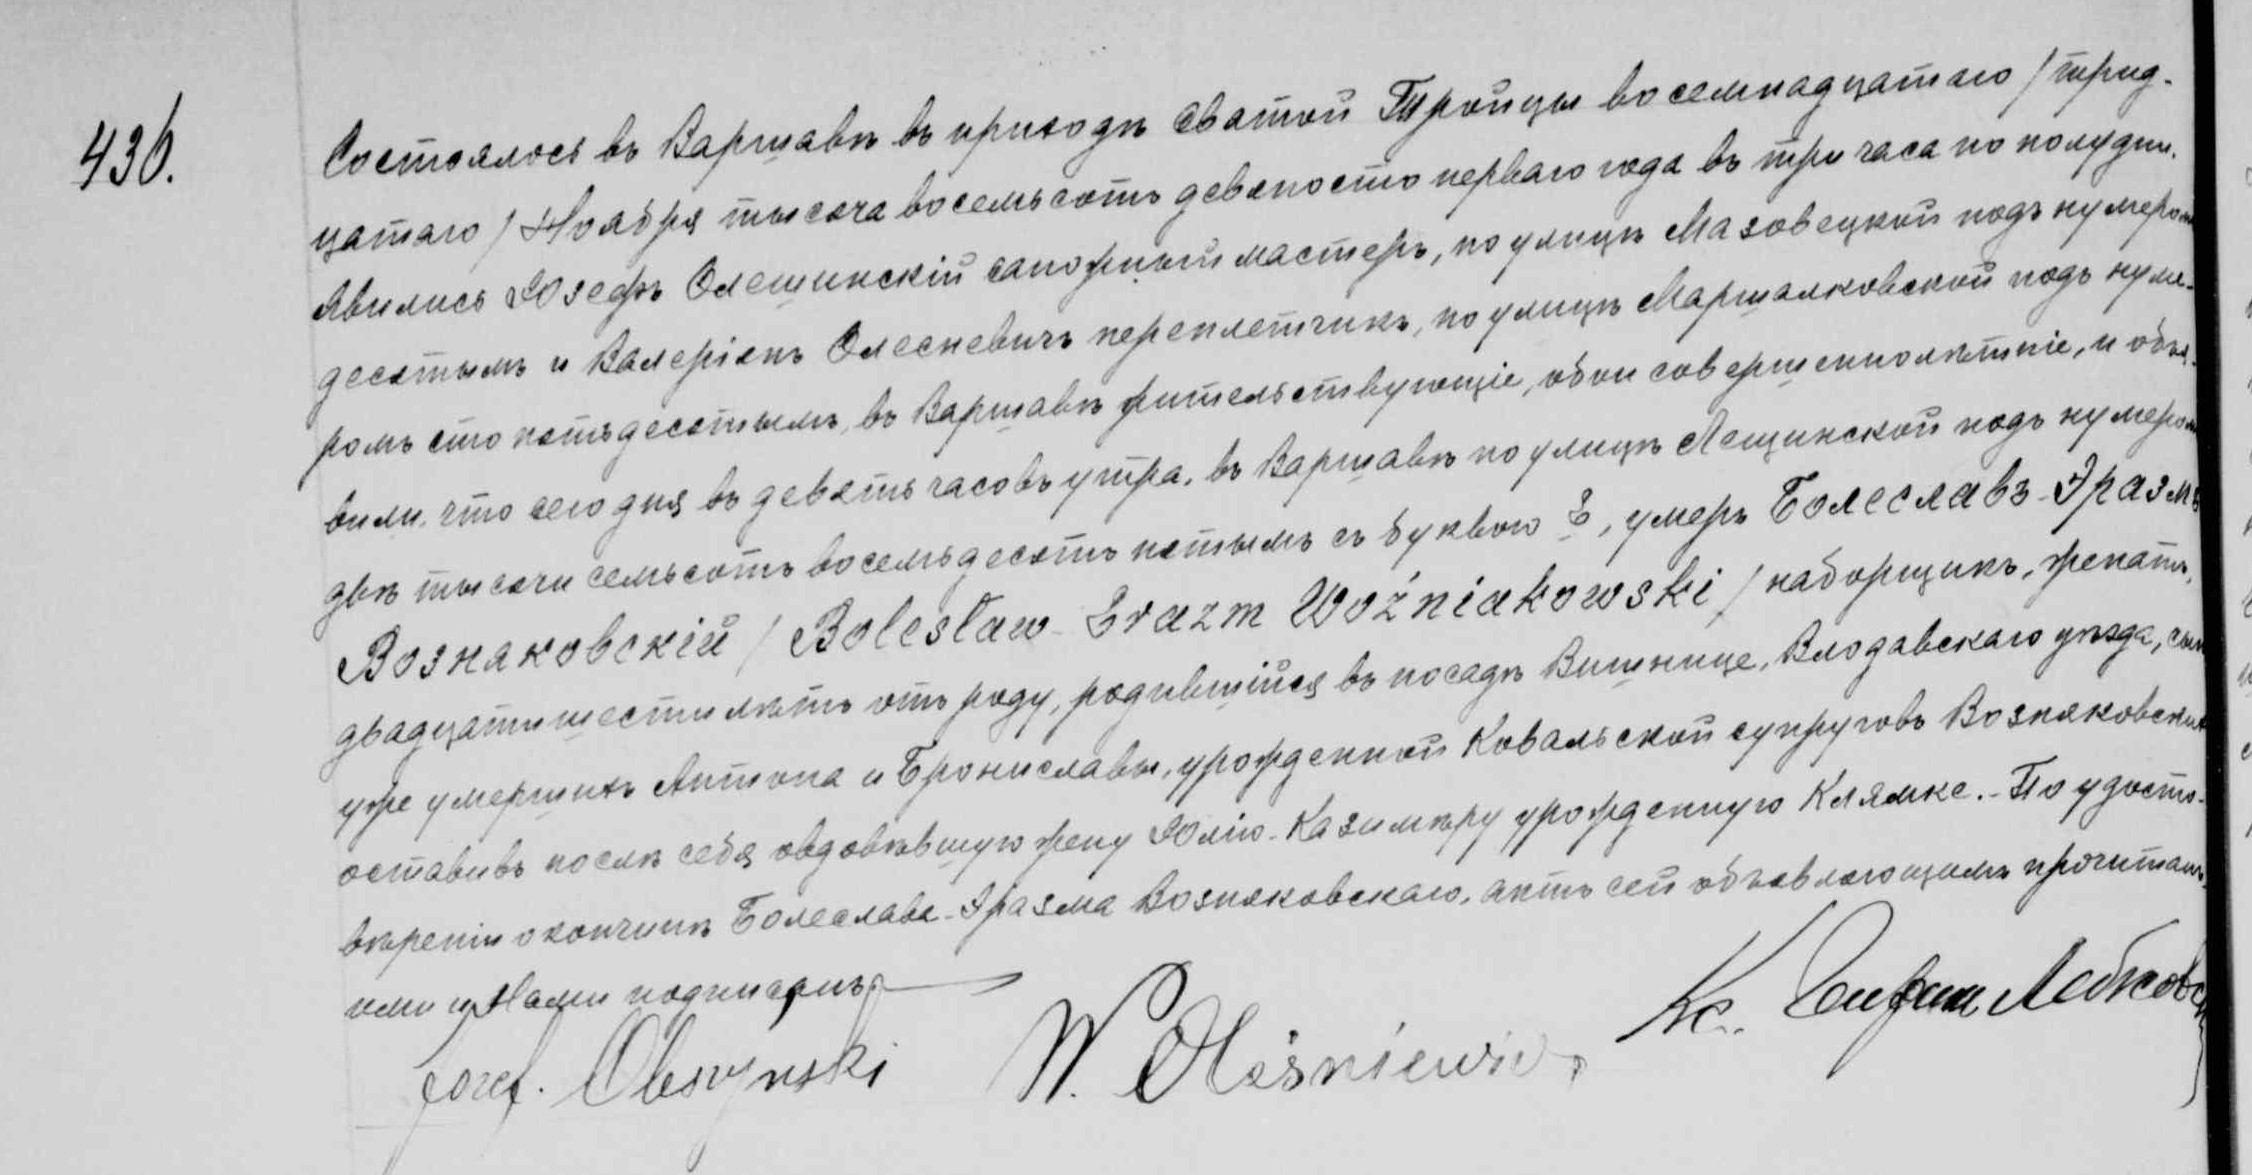 436.
Состоялось въ Варшавѣ въ приходѣ Святой Тройцы восемнадцатаго / трид-
цатаго / Ноября тысяча восемьсотъ девяносто перваго года въ три часа по полудни.
Явились Юзефъ Олешинскій сапожный мастеръ, по улицѣ Мазовецкой подъ нумеромъ
десятымъ и Валеріянъ Олесневичъ переплетчикъ, по улицѣ Маршалковской подъ нуме-
ромъ сто пятьдесятымъ, въ Варшавѣ жительствующіе, обои совершеннолѣтніе, и объя-
вили, что сего дня въ девять часовъ утра, въ Варшавѣ по улицѣ Лещинской подъ нумеромъ
двѣ тысячи семьсотъ восемьдесятъ пятымъ съ буквою Е, умеръ Болеславъ-Эразмъ
Вознаковскій / Bolesław-Erazm Woźniakowski / наборщикъ, женатъ,
двадцати шести лѣтъ отъ роду, родившійся въ посадѣ Вишнице, Влодавскаго уѣзда, сынъ
уже умершихъ Антона и Брониславы, урожденной Ковальской супруговъ Возняковскихъ
оставивъ послѣ себя овдовѣвшую жену Юлію-Казимѣру урожденную Клямке.- По удосто-
вѣреніи о кончинѣ Болеслава-Эразма Возняковскаго, актъ сей объявляющимъ прочитанъ
ими и Нами подписанъ
Józef. Oleszyński W. Oleśniewicz Кс.